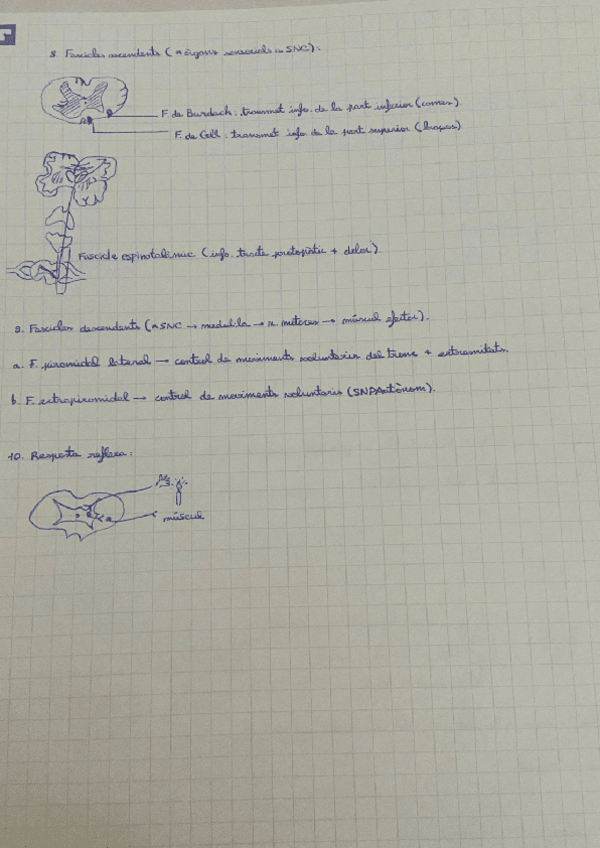 8. Fascicles ascendents (n òrgans sensorials → SNC):
F. de Burdach: transmet info. de la part inferior (cames).
F. de Goll: transmet info de la part superior (braços)
Fascicle espinotalàmic (info. tacte protopàtic + dolor).
9. Fascicles descendents (n SNC → medul·la → n. motores → múscul efector).
a. F. piramidal lateral → control de moviments voluntaris del tronc + extremitats.
b. F. extrapiramidal → control de moviments voluntaris (SNPAutònom).
10. Resposta reflexa:
múscul